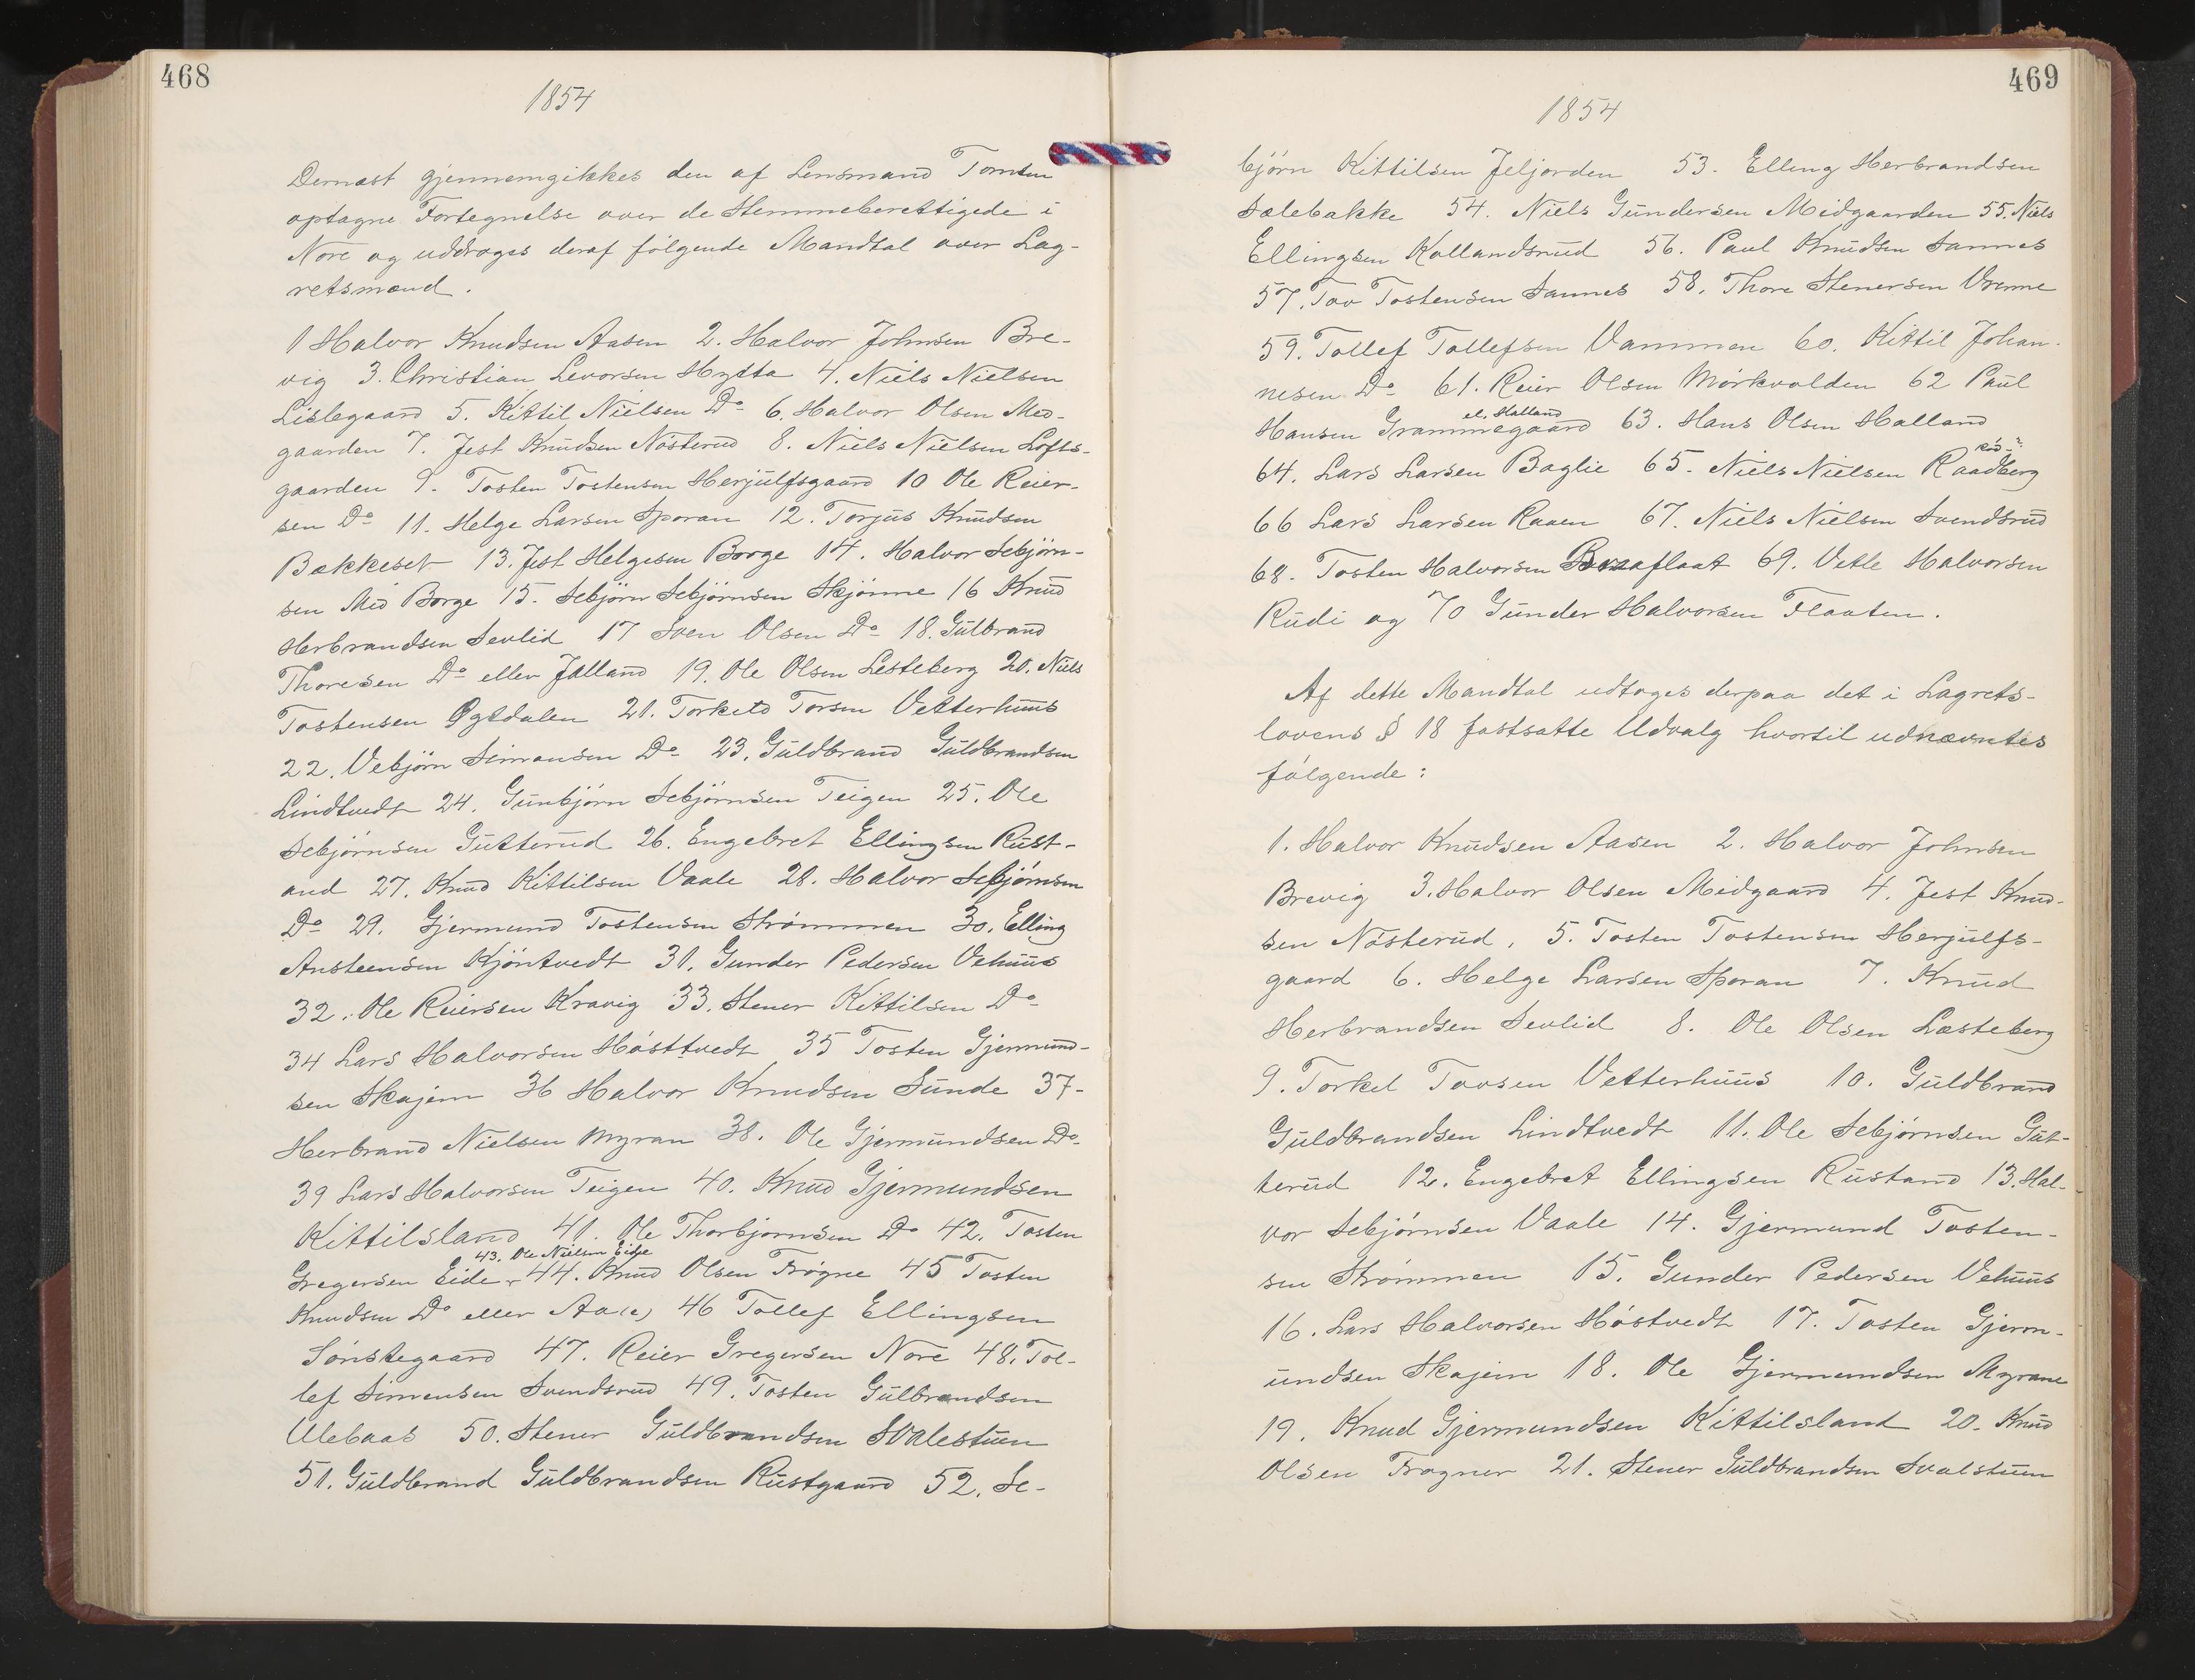 468
1854
Dernæst gjennemgikkes den af Lensmand Tomten
optagne Fortegnelse over de Stemmeberettigede i
Nore og uddroges deraf følgende Mandtal over Lag-
retsmænd.
1 Halvor Knudsen Aasen 2. Halvor Johnsen Bre-
vig 3. Christian Levorsen Hydta 4. Niels Nielsen
Lislegaard 5. Kittil Nielsen Do 6. Halvor Olsen Med-
gaarden 7. Jest Knudsen Nøsterud 8. Niels Nielsen Lofts-
gaarden 9. Tosten Tostensen Herjulfsgaard 10 Ole Reier-
sen Do 11. Helge Larsen Sporan 12. Torjus Knudsen
Bækkeset 13. Jest Helgesen Borge 14. Halvor Sebjørn-
sen Mid Borge 15. Sebjørn Sebjørnsen Skjønne 16 Knud
Herbrandsen Sevlid 17 Sven Olsen Do 18. Gulbrand
Thoresen Do eller Jalland 19. Ole Olsen Lesteberg 20. Niels
Tostensen Øgtdalen 21. Torkeld Torsen Vetterhuus
22. Vebjørn Simensen Do 23. Guldbrand Guldbrandsen
Lindtvedt 24. Gunbjørn Sebjørnsen Teigen 25. Ole
Sebjørnsen Gutterud 26. Engebret Ellingsen Rust-
and 27. Knud Kittilsen Vaale 28. Halvor Sebjørnsen
Do 29. Gjermund Tostensen Strømmen 30. Elling
Ansteensen Kjøntvedt 31. Gunder Pedersen Vehuus
32. Ole Reiersen Kravig 33. Stener Kittilsen Do
34 Lars Halvorsen Høsttvedt 35 Tosten Gjermund-
sen Skajem 36 Halvor Knudsen Sunde 37-
Herbrand Nielsen Myran 38. Ole Gjermundsen Do
39 Lars Halvorsen Teigen 40. Knud Gjermundsen
Kittilsland 41. Ole Thorbjornsen Do 42. Tosten
43. Ole Nielsen Eidje
Gregersen Eide 44. Knud Olsen Frøgne 45 Tosten
Knudsen Do eller Aa(e) 46 Tollef Ellingsen
Sønstegaard 47. Reier Gregersen Nore 48. Tol-
lef Simensen Svendsrud 49. Tosten Gulbrandsen
Ulebaas 50. Stener Guldbrandsen Svalestuen
51. Guldbrand Guldbrandsen Rustgaard 52. Se-
469
1854
bjørn Kittilsen Jeljorden 53. Elling Herbrandsen
Sælebakke 54. Niels Gundersen Midgaarden 55. Niels
Ellingsen Kollandsrud 56. Paul Knudsen Sannes
57. Tov Tostensen Sannes 58. Thore Stenersen Vrenne
59. Tollef Tollefsen Vammen 60. Kittil Johan-
nesen Do 61. Reier Olsen Mørkvolden 62 Paul
el. Halland
Hansen Grammegaard 63. Hans Olsen Halland
Rød-?
64. Lars Larsen Baglie 65. Niels Nielsen Raadberg
66 Lars Larsen Raaen 67. Niels Nielsen Svendsrud
68. Tosten Halvorsen Braaflaat 69. Vetle Halvorsen
Rudi og 70 Gunder Halvorsen Flaaten.
Af dette Mandtal udtoges derpaa det i Lagrets-
lovens § 18 fastsatte Udvalg hvortil udnævntes
følgende:
1. Halvor Knudsen Aasen 2. Halvor Johnsen
Brevig 3. Halvor Olsen Midgaard 4. Jest Knud-
sen Nøsterud, 5. Tosten Tostensen Herjulfs-
gaard 6. Helge Larsen Sporan 7. Knud
Herbrandsen Sevlid 8. Ole Olsen Læsteberg
9. Torkel Tovsen Vetterhuus 10. Guldbrand
Guldbrandsen Lindtvedt 11. Ole Sebjørnsen Gut-
terud 12. Engebret Ellingsen Rustand 13. Hal-
vor Sebjørnsen Vaale 14. Gjermund Tosten-
sen Strømmen 15. Gunder Pedersen Vehuus
16. Lars Halvorsen Høstvedt 17. Tosten Gjerm-
undsen Skajem 18. Ole Gjermundsen Myrane
19. Knud Gjermundsen Kittilsland 20. Knud
Olsen Frogner 21. Stener Guldbrandsen Svalstuen